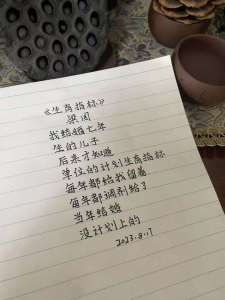 《生育指标》
梁闵
我结婚七年
生的儿子
后来才知道
单位的计划生育指标
每年都给我留着
每年都调剂给了
当年结婚
没计划上的
2023.9.17